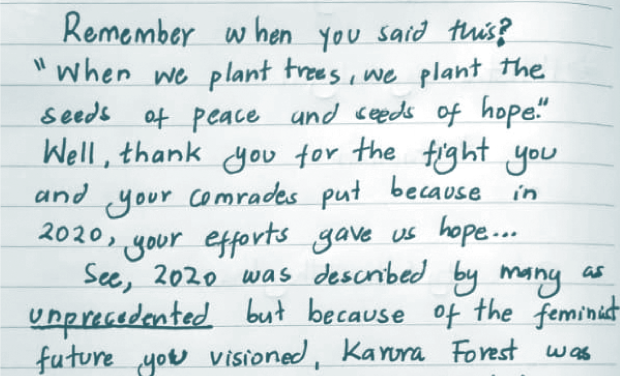 Remember when you said this?
"When we plant trees, we plant the
seeds of peace and seeds of hope."
Well, thank you for the fight you
and your comrades put because in
2020, your efforts gave us hope...
See, 2020 was described by many as
unprecedented but because of the feminist
future you visioned, Karura Forest was